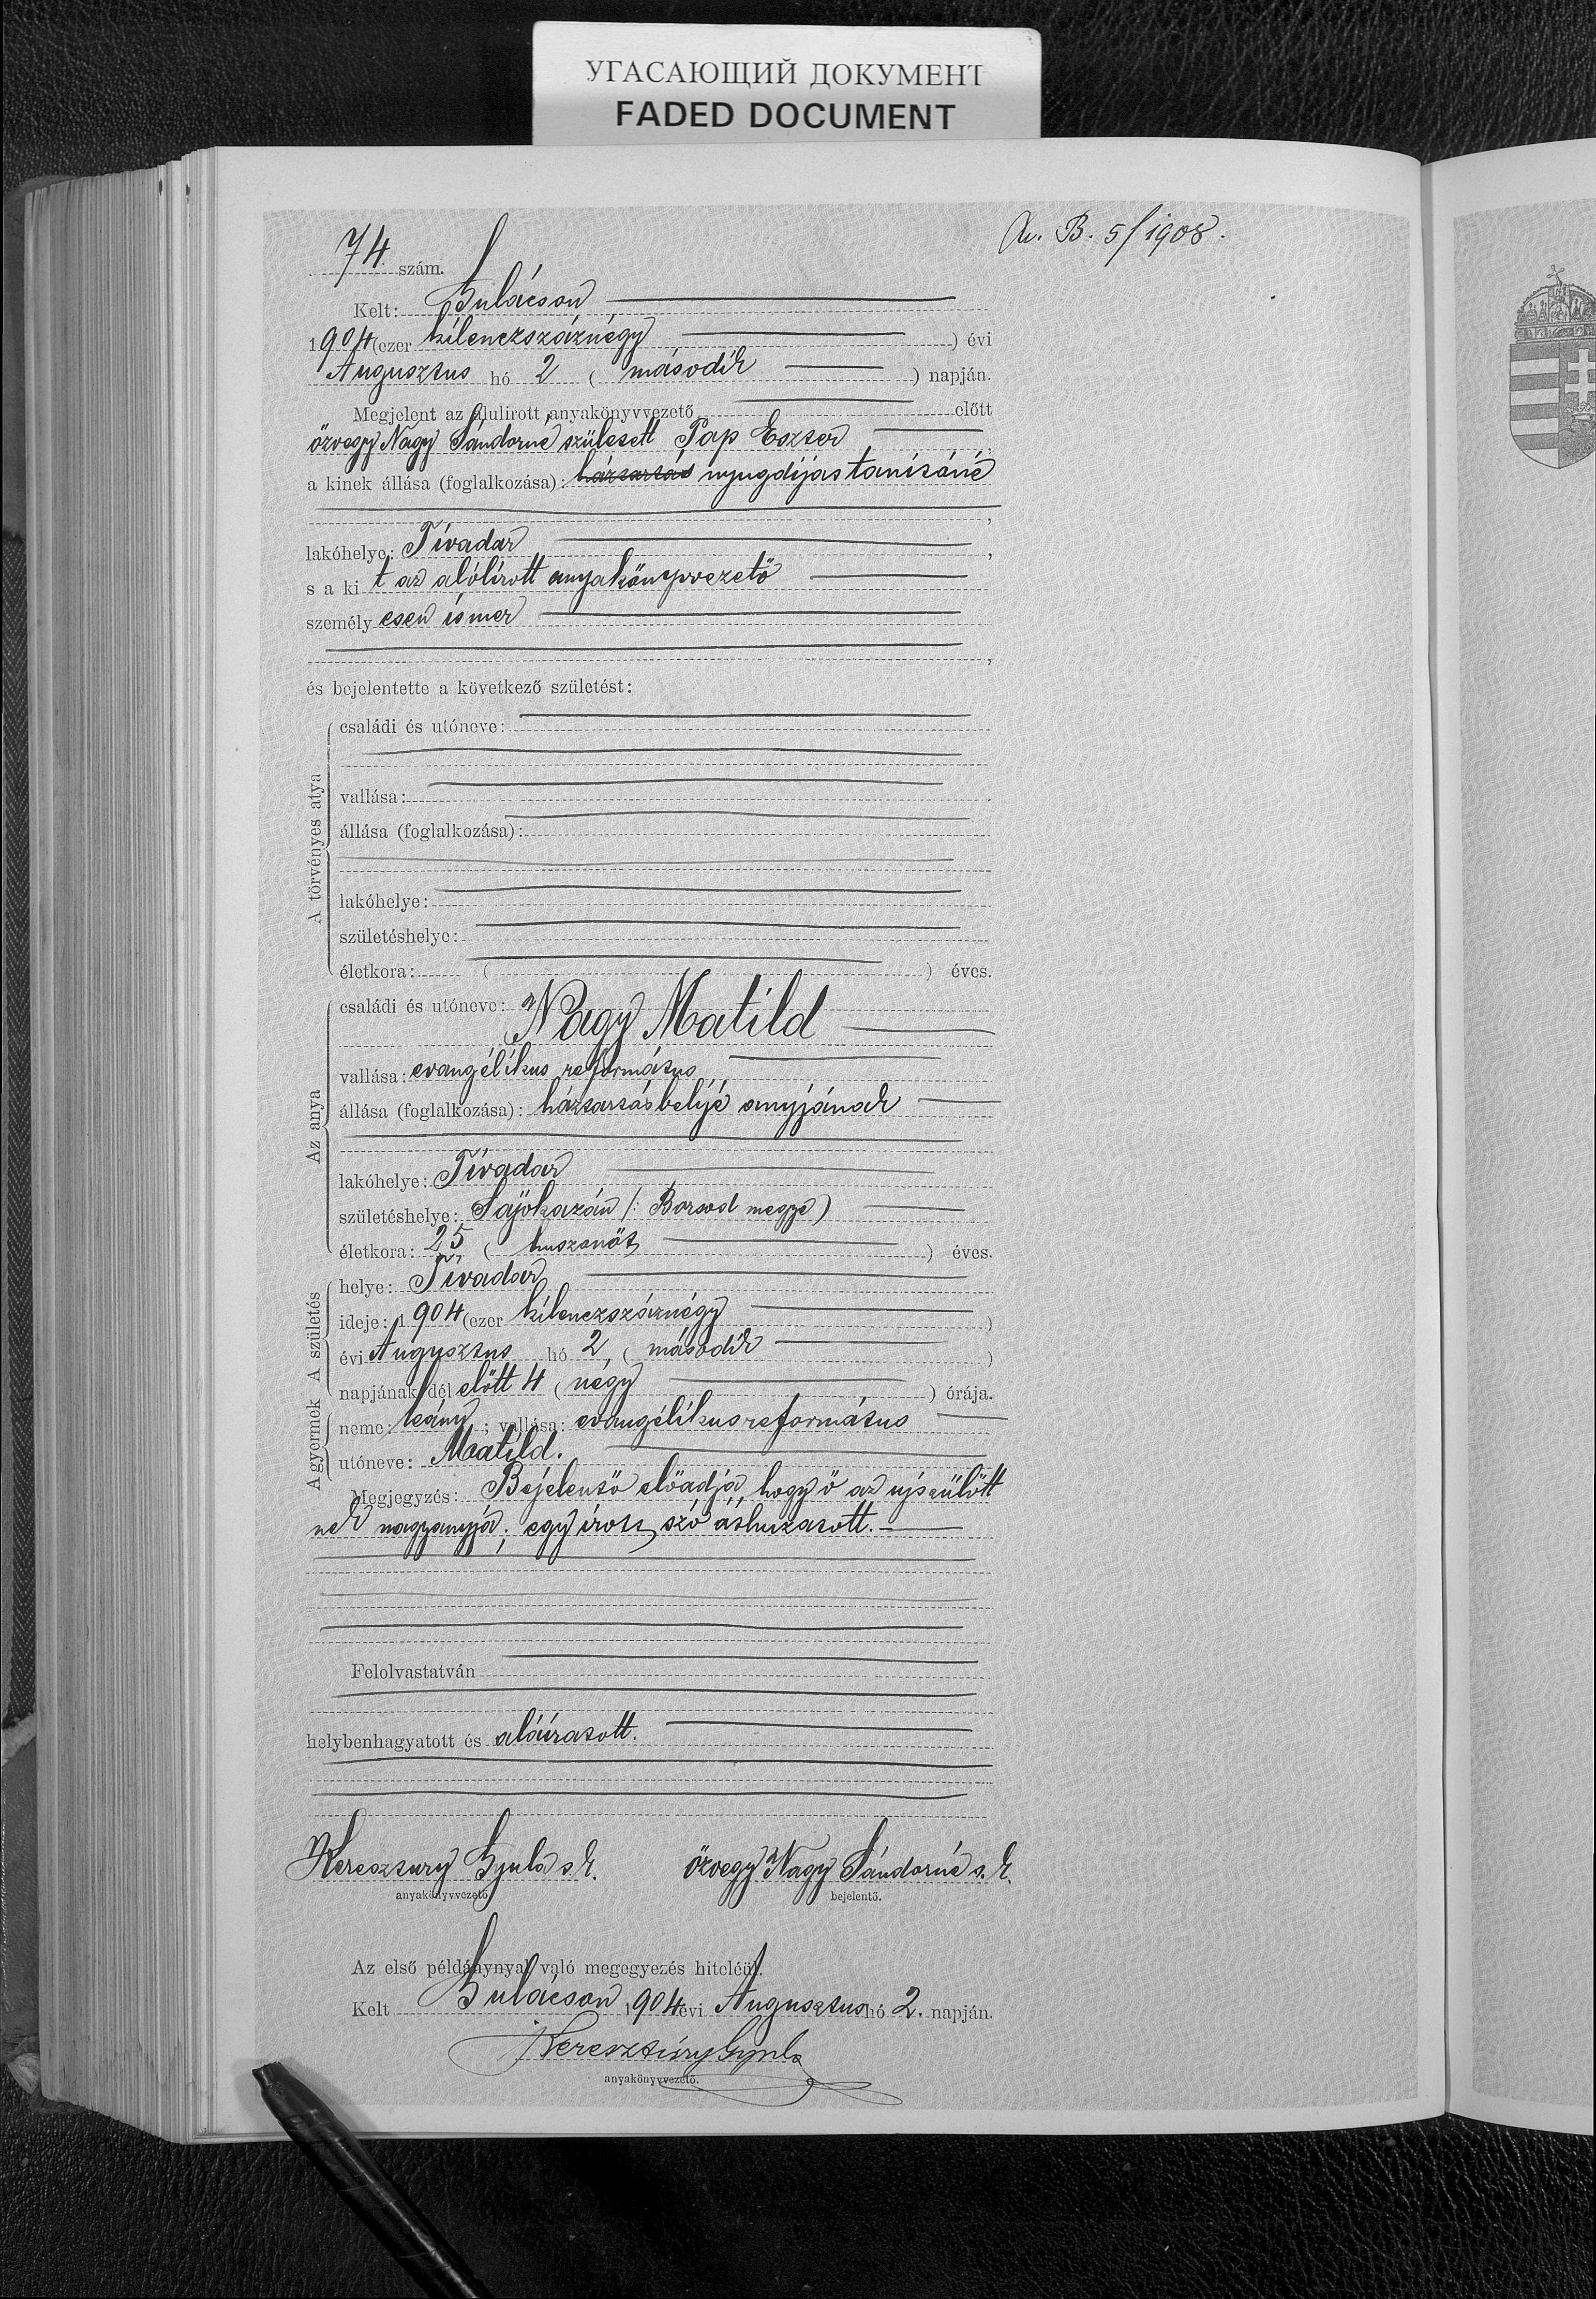 УГАСАЮЩИЙ ДОКУМЕНТ
FADED DOCUMENT
B. 5/1908.
74 szám.
Kelt: Gulácson
1904 (ezer kilenczszáznégy ) évi
Augusztus hó 2 ( második ) napján.
Megjelent az alulirott anyakönyvvezető előtt
özvegy Nagy Sándorné született Pap Eszter
a kinek állása (foglalkozása): háztartás nyugdijas tanitóné
lakóhelye: Tivadar ,
s a ki t az alólírott anyakönyvvezető
személy esen ismer
,
és bejelentette a következő születést:
A törvényes atya
családi és utóneve:
vallása:
állása (foglalkozása):
lakóhelye:
születéshelye:
életkora: ( ) éves.
Az anya
családi és utóneve: Nagy Matild
vallása: evangélikus református
állása (foglalkozása): háztartásbelije anyjának
lakóhelye: Tivadar
születéshelye: Sajókazán /: Borsod megye)
életkora: 25 ( huszonöt ) éves.
A születés
helye: Tivadar
ideje: 1904 (ezer kilenczszáznégy )
évi Augusztus hó 2, ( második )
napjának dél előtt 4 ( négy ) órája.
A gyermek
neme: leány ; vallása: evangélikus református
utóneve: Matild.
Megjegyzés: Bejelentő előadja, hogy ő az ujszülött
nek nagyanyja; egy irott szó áthuzatott.
Felolvastatván
helybenhagyatott és aláiratott.
Keresztury Gyula s. k. özvegy Nagy Sándorné s. k.
anyakönyvvezető bejelentő.
Az első példánynyal való megegyezés hiteléül.
Kelt Gulácson 1904 évi Augusztus hó 2. napján.
Keresztúry Gyula
anyakönyvvezető.